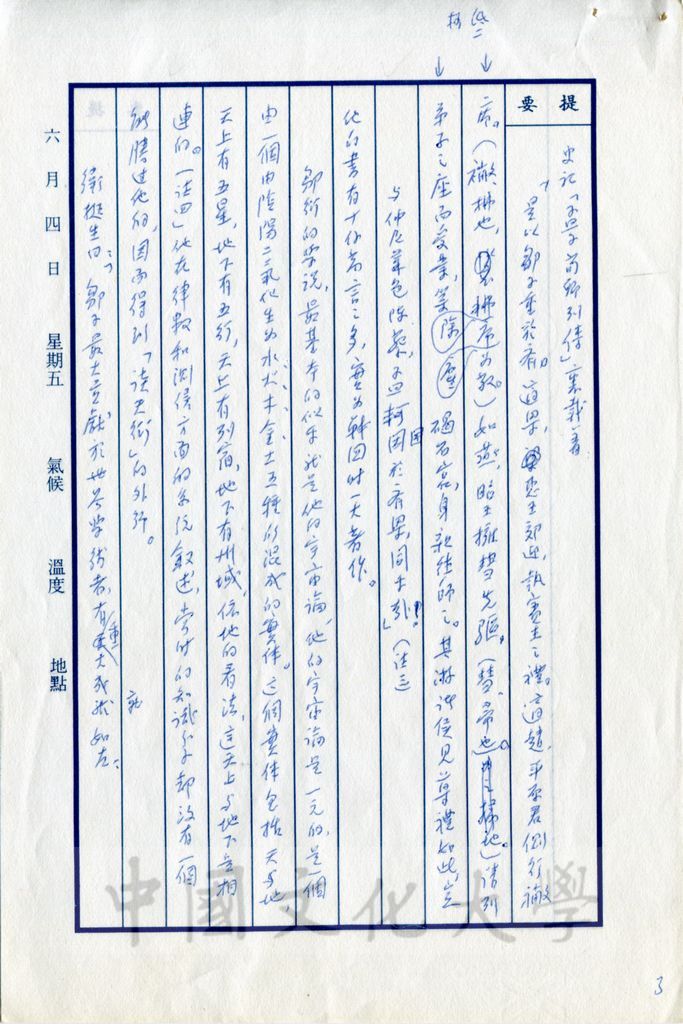 提要
史記「孟子荀卿列傳」裏載著：
「是以鄒子重於齊。適梁，惠王郊迎，執賓主之禮。適趙，平原君側行襒
席。（襒，拂也，拂席為敬。）如燕，昭王擁彗先驅。（彗，帚也，掃地）請列
弟子之座而受業，築碣石宮，身親往師之。其游諸侯見尊禮如此，豈
與仲尼菜色陳蔡，孟軻困於齊梁，同乎哉」。（註三）
他的書有十餘萬言之多，實為戰國時一大著作。
鄒衍的學說，最基本的似乎就是他的宇宙論，他的宇宙論是一元的，是一個
由一個由陰陽二氣化生為水、火、木、金、土五種所混成的實体。這個實体包括天與地，
天上有五星，地下有五行，天上有列宿，地下有州域，依他的看法，這天上與地下是相
連的。（註四）他在律數和測候方面的系統敘述，當時的知識分子卻沒有一個
能勝過他的，因而得到「談天衍」的外號。
衛挺生曰：鄒子最大貢獻於世界學術者，有重大成就如左：
六月四日 星期五 氣候 溫度 地點
中國文化大學
3